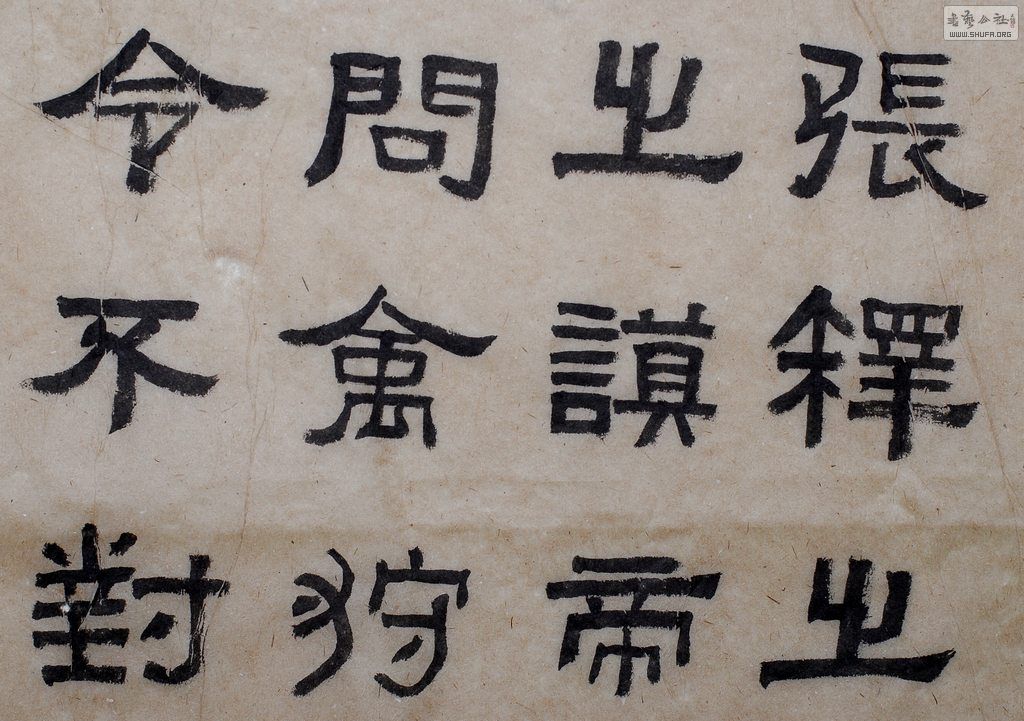 張釋之
之謨帝
問禽狩
令不對
書藝公社
WWW.SHUFA.ORG